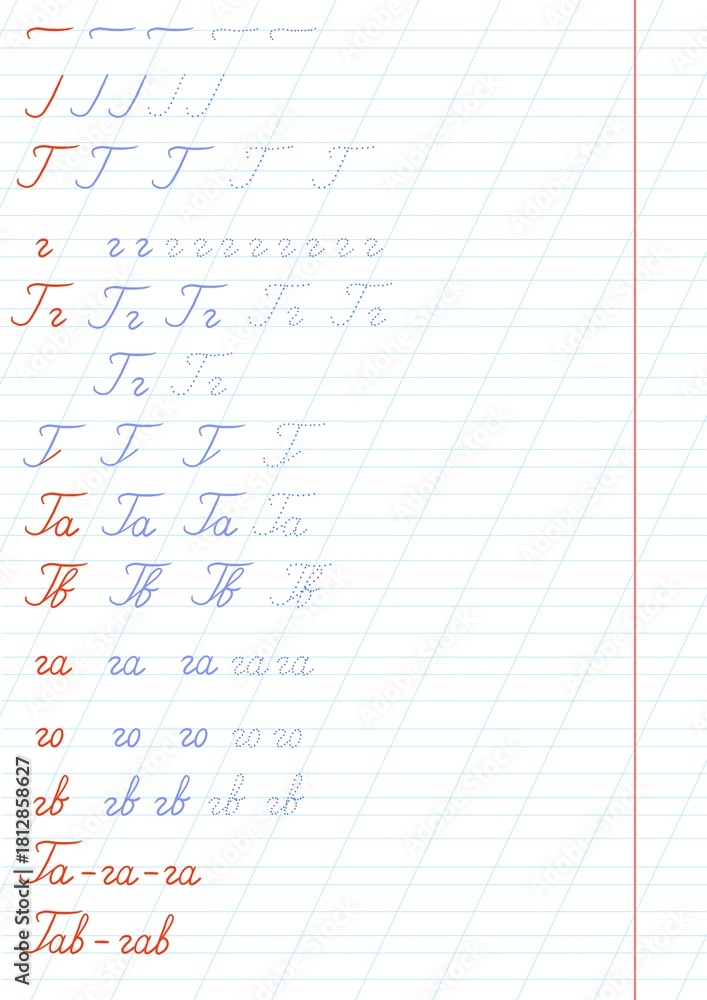 Г Г Г Г Г
г г г г г г г г г г г
Гг Гг Гг Гг Гг
Гг Гг
Г Г Г Г
Га Га Га Га
Гв Гв Гв Гв
га га га га га
го го го го го
гв гв гв гв гв
Га-га-га
Гав - гав
Adobe Stock | #1812858627